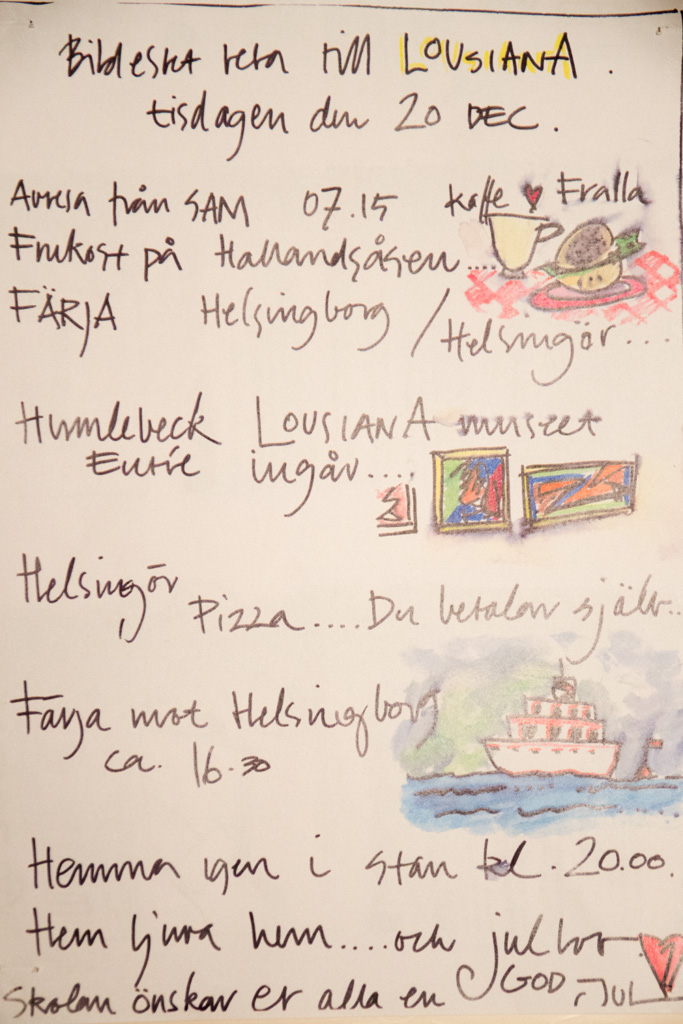 Bildeskt resa till LOUSIANA.
tisdagen den 20 DEC.
Avresa från SAM 07.15 kaffe Fralla
Frukost på Hallandsåsen....
FÄRJA Helsingborg / Helsingör...
Humlebeck LOUSIANA museet
Entré ingår....
Helsingör
Pizza.... Du betalar själv..
Färja mot Helsingborg
ca. 16.30
Hemma igen i stan kl. 20.00.
Hem ljuva hem....och jullov
Skolan önskar er alla en GOD JUL